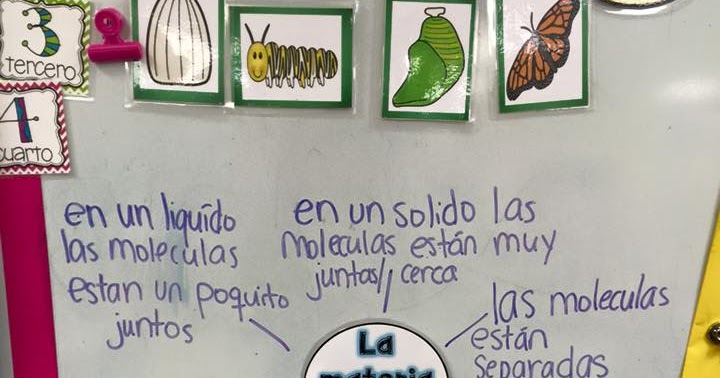 3
tercero
4
cuarto
en un liquido
las moleculas
estan un poquito
juntos
en un solido las
moleculas están muy
juntas/, cerca
las moleculas
están
separadas
La
materia